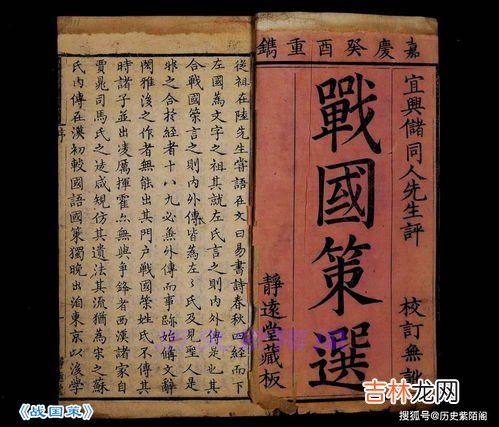 嘉慶癸酉重鐫
宜興儲同人先生評
校訂無訛
戰國策選
靜遠堂藏板
從祖在陸先生嘗語在文曰易書詩春秋四經而下
左國為文字之祖其就左氏言之則內外傳是也其
合戰國策言之則內外傳皆為左氏左氏及見聖人是
非之合於經者十八九必無外傳而事跡始備文辭
閎雅後之作者無能出其門戶戰國策姓氏不傳其
時諸子並出凌厲揮霍亦無與爭鋒者西漢諸家自
賈晁司馬氏之遠咸規仿其遺法其流猶為宋之蘇
氏內傳在漢初較國語國策獨晚出洎東京以後學
序
《战国策》
吉林龙网
搜狐号@历史紫陌阁